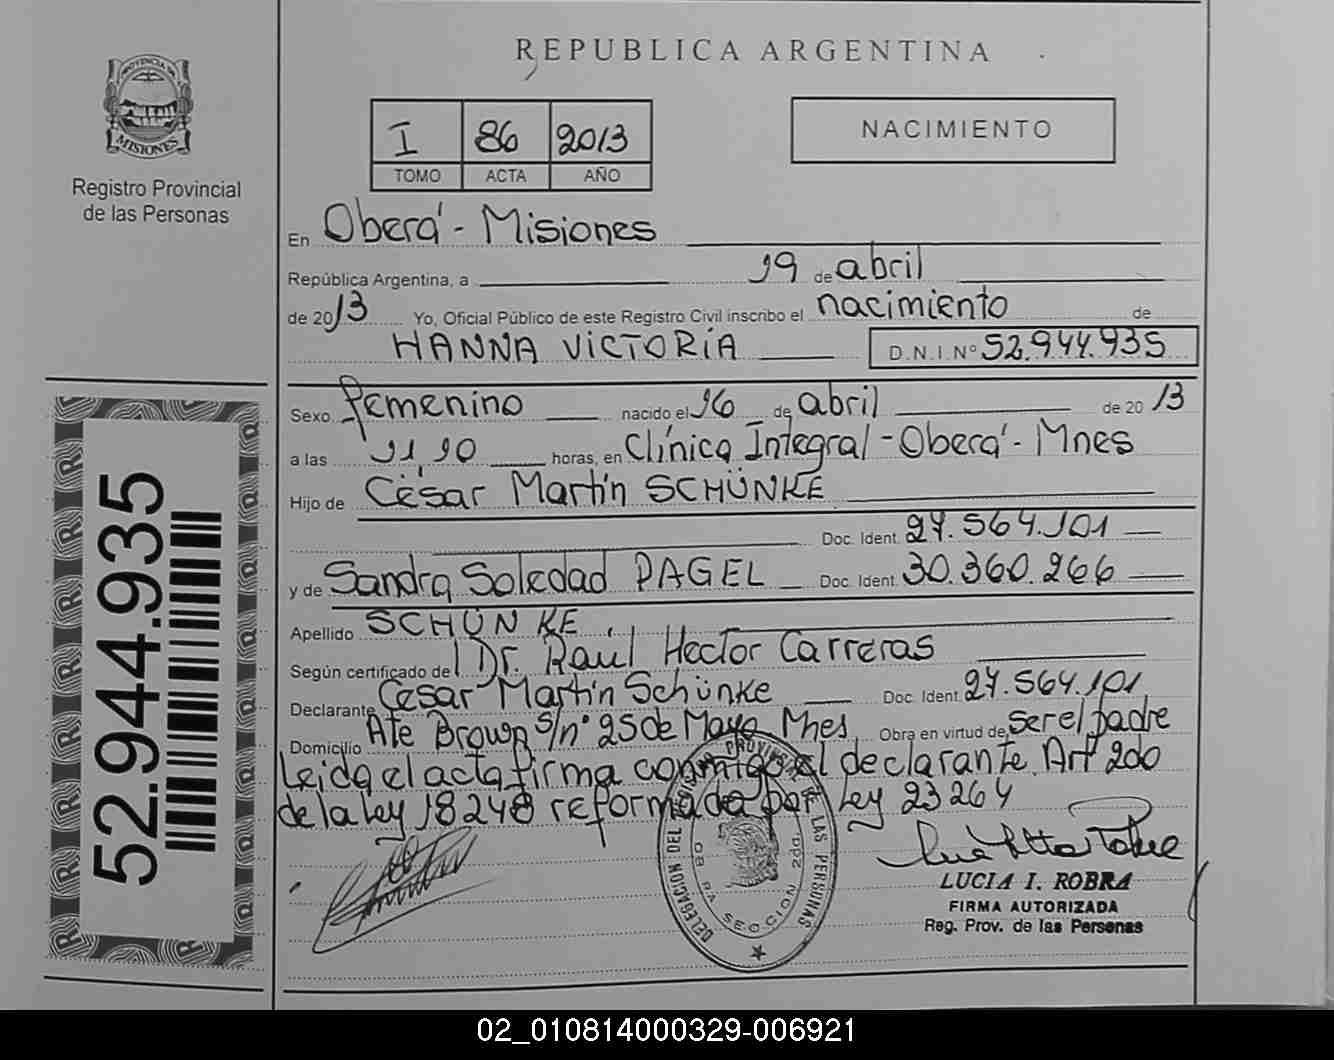 REPUBLICA ARGENTINA
PROVINCIA DE
MISIONES
Registro Provincial
de las Personas
I 86 2013
TOMO ACTA AÑO
NACIMIENTO
En Oberá - Misiones
República Argentina, a 19 de abril
de 2013 Yo, Oficial Público de este Registro Civil inscribo el nacimiento de
HANNA VICTORIA D.N.I. Nº 52.944.935
Sexo femenino nacido el 16 de abril de 2013
a las 11 10 horas, en Clínica Integral - Oberá - Mnes
Hijo de César Martín SCHÜNKE
Doc. Ident. 27.564.101
y de Sandra Soledad PAGEL Doc. Ident. 30.360.266
Apellido SCHÜNKE
Según certificado del Dr. Raúl Hector Carreras
Declarante César Martín Schünke Doc. Ident. 27.564.101
Domicilio Ate Brown s/nº 25 de Mayo Mnes Obra en virtud de ser el padre
Leida el acta firma conmigo el declarante. Art 200
de la Ley 18248 reformada por Ley 23264
DELEGACION DEL REGISTRO PROVINCIAL DE LAS PERSONAS
SECCION
LUCIA I. ROBRA
FIRMA AUTORIZADA
Reg. Prov. de las Personas
52.944.935
02_010814000329-006921